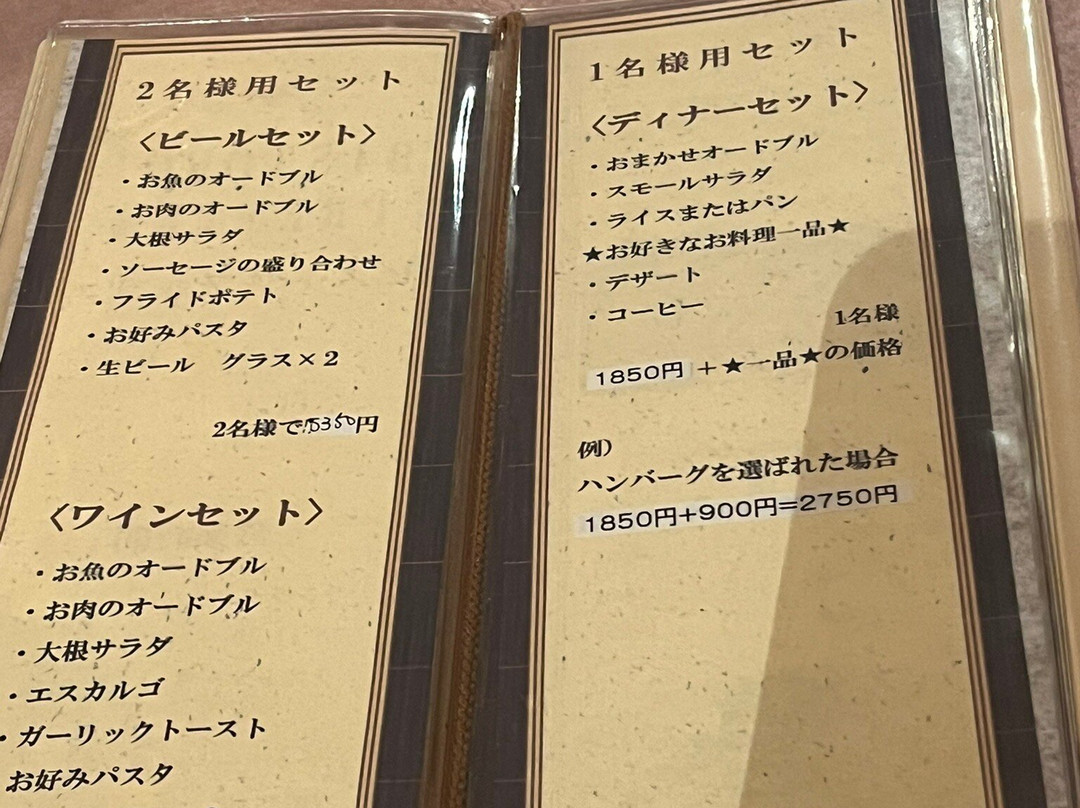 2名様用セット
〈ビールセット〉
・お魚のオードブル
・お肉のオードブル
・大根サラダ
・ソーセージの盛り合わせ
・フライドポテト
・お好みパスタ
・生ビール　グラス×2
2名様で5350円
〈ワインセット〉
・お魚のオードブル
・お肉のオードブル
・大根サラダ
・エスカルゴ
・ガーリックトースト
お好みパスタ
1名様用セット
〈ディナーセット〉
・おまかせオードブル
・スモールサラダ
・ライスまたはパン
★お好きなお料理一品★
・デザート
・コーヒー
1名様
1850円＋★一品★の価格
例）
ハンバーグを選ばれた場合
1850円+900円=2750円